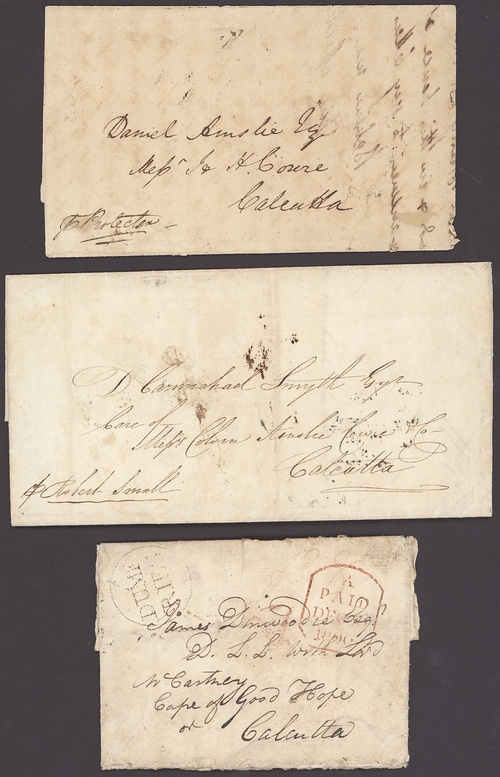 Daniel Ainslie Esq
Mess.rs Js & H. Cowie
Calcutta
p Protector
D Carmichael Smyth Esqr
Care of
Mess Colvin Ainslie Cowie & Co
Calcutta
p Robert Small
DUMF
RIES
A
PAID
DEC
James Dinwoodie Esqr
D. L. L. with Lord
McCartney
Cape of Good Hope
or
Calcutta